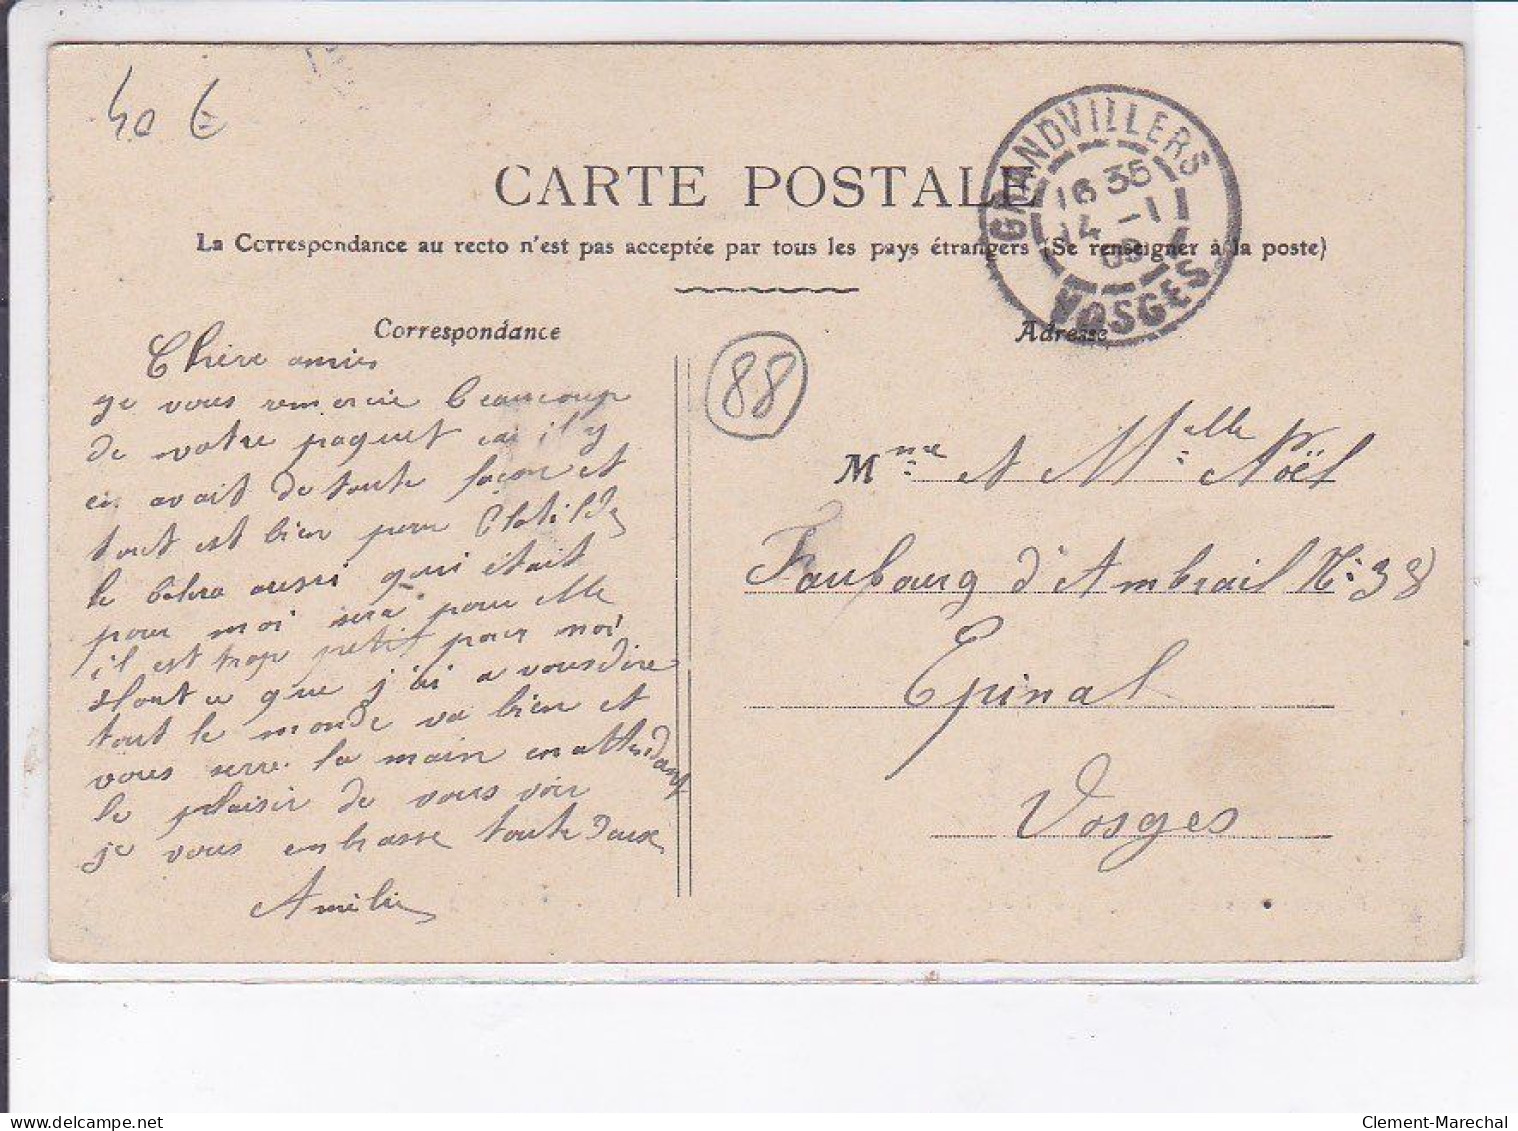 40 €
CARTE POSTALE
GRANDVILLERS
16 35
14 -1
09
VOSGES
La Correspondance au recto n'est pas acceptée par tous les pays étrangers (Se renseigner à la poste)
Correspondance
Adresse
88
Chère amies
ge vous remercie beaucoup
de votre paquet car il y
en avait de toute façon et
tout est bien pour Clotilde
le boléro aussi qui était
pour moi sera pour elle
il est trop petit pour moi
s'tout ce que j'ai a vous dire
tout le monde va bien et
vous serre la main en attendant
le plaisir de vous voir
je vous embrasse toute deux
Amélie
Mme et Melle Noël
Faubourg d'Ambrail N: 38
Epinal
Vosges
delcampe.net
Clement-Marechal